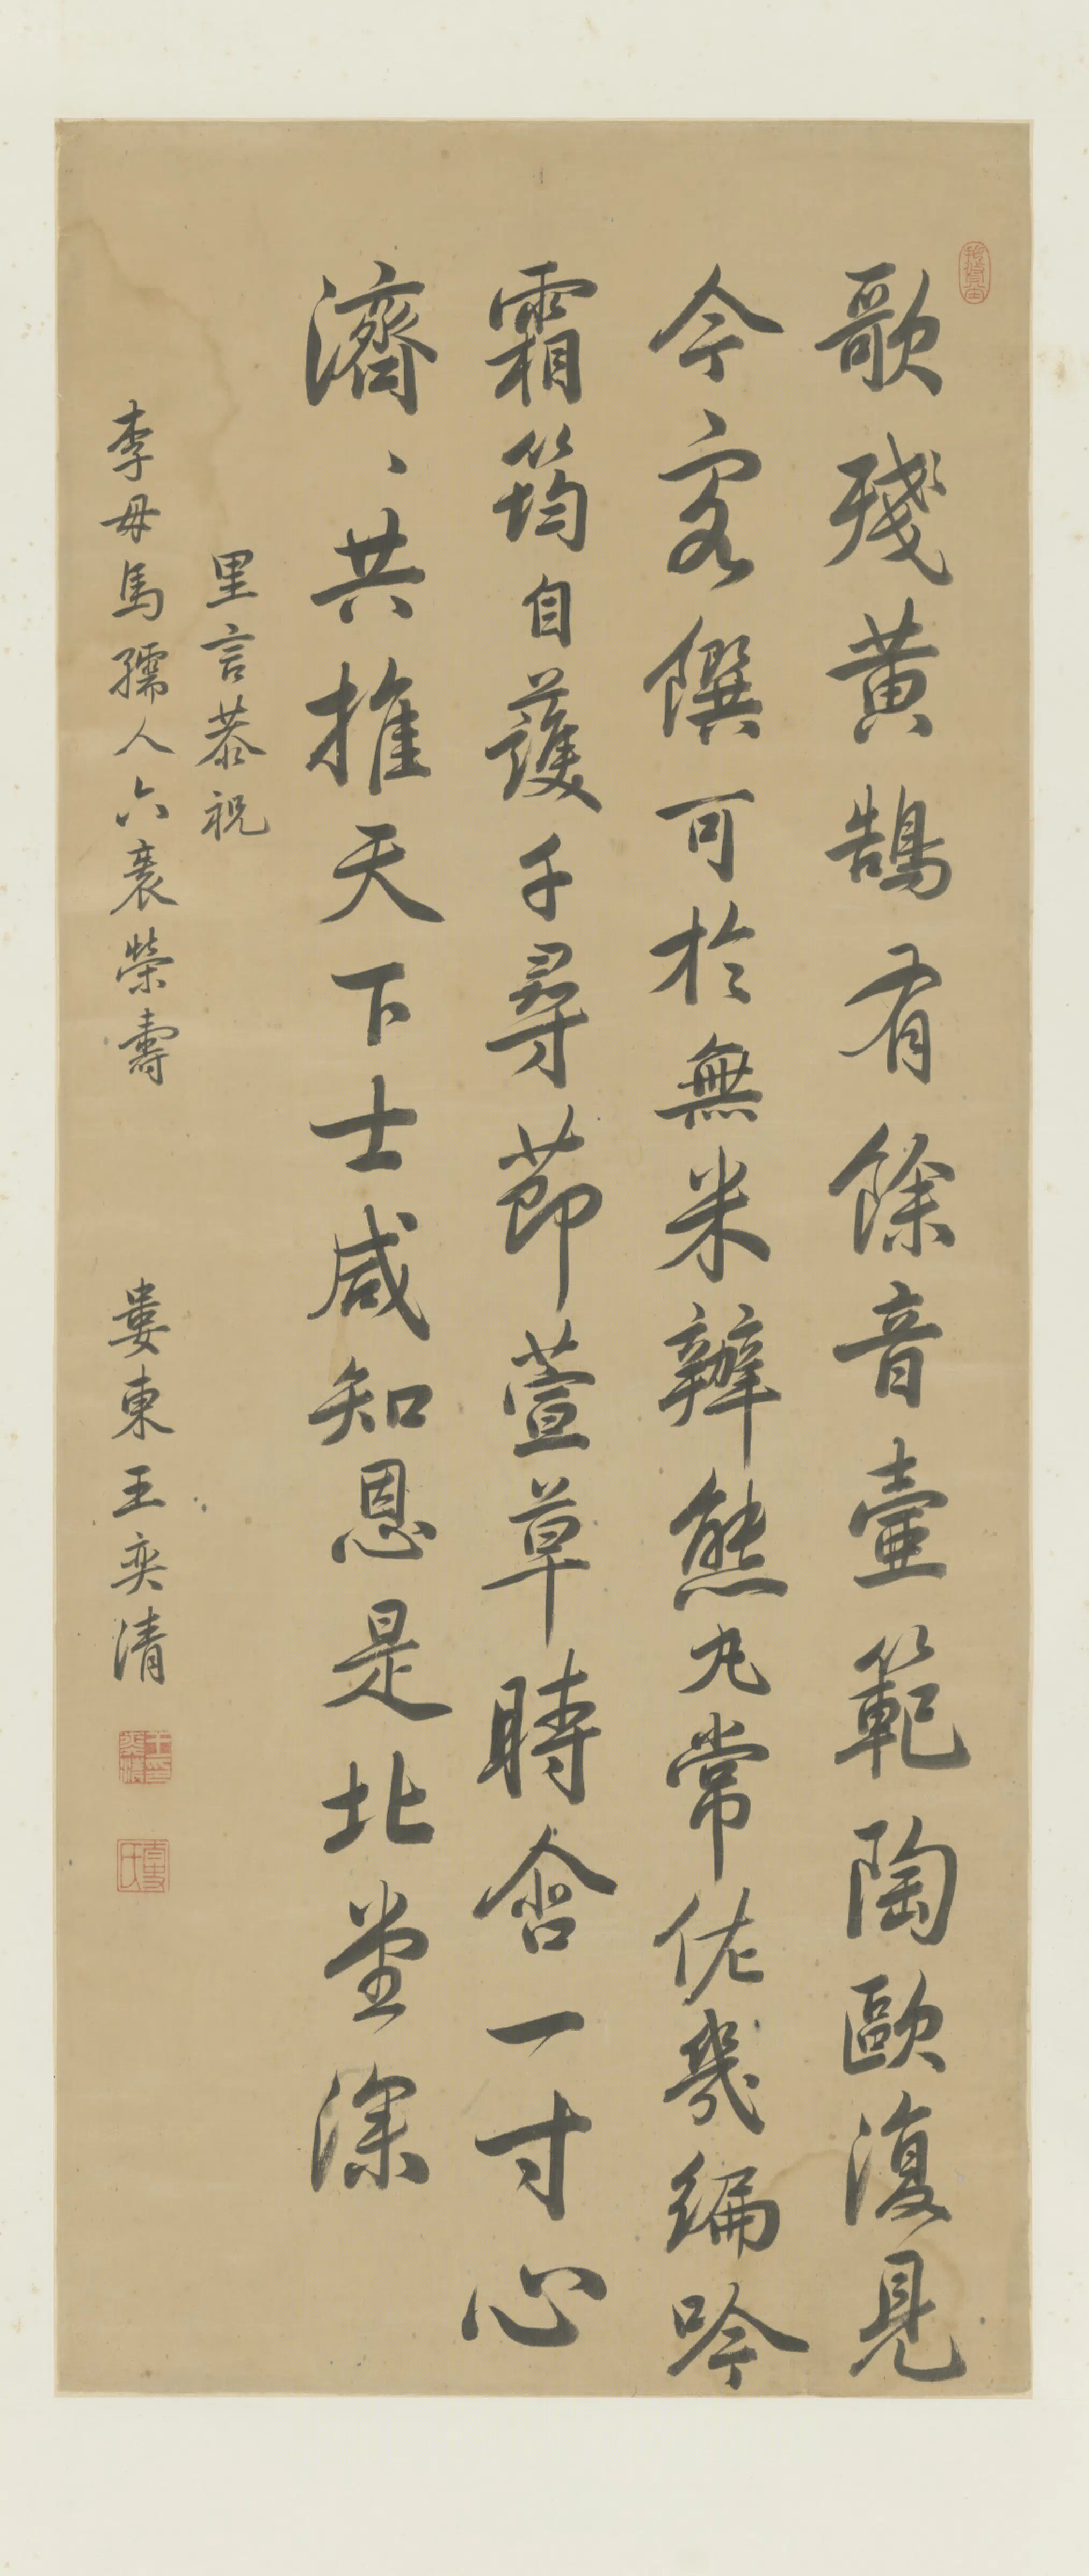 歌殘黃鵠有餘音壼範陶歐復見
今客饌可於無米辦熊丸常佐幾編吟
霜筠自護千尋節萱草時含一寸心
濟、共推天下士咸知恩是北堂深
里言恭祝
李母馬孺人六袠榮壽
婁東王奕清